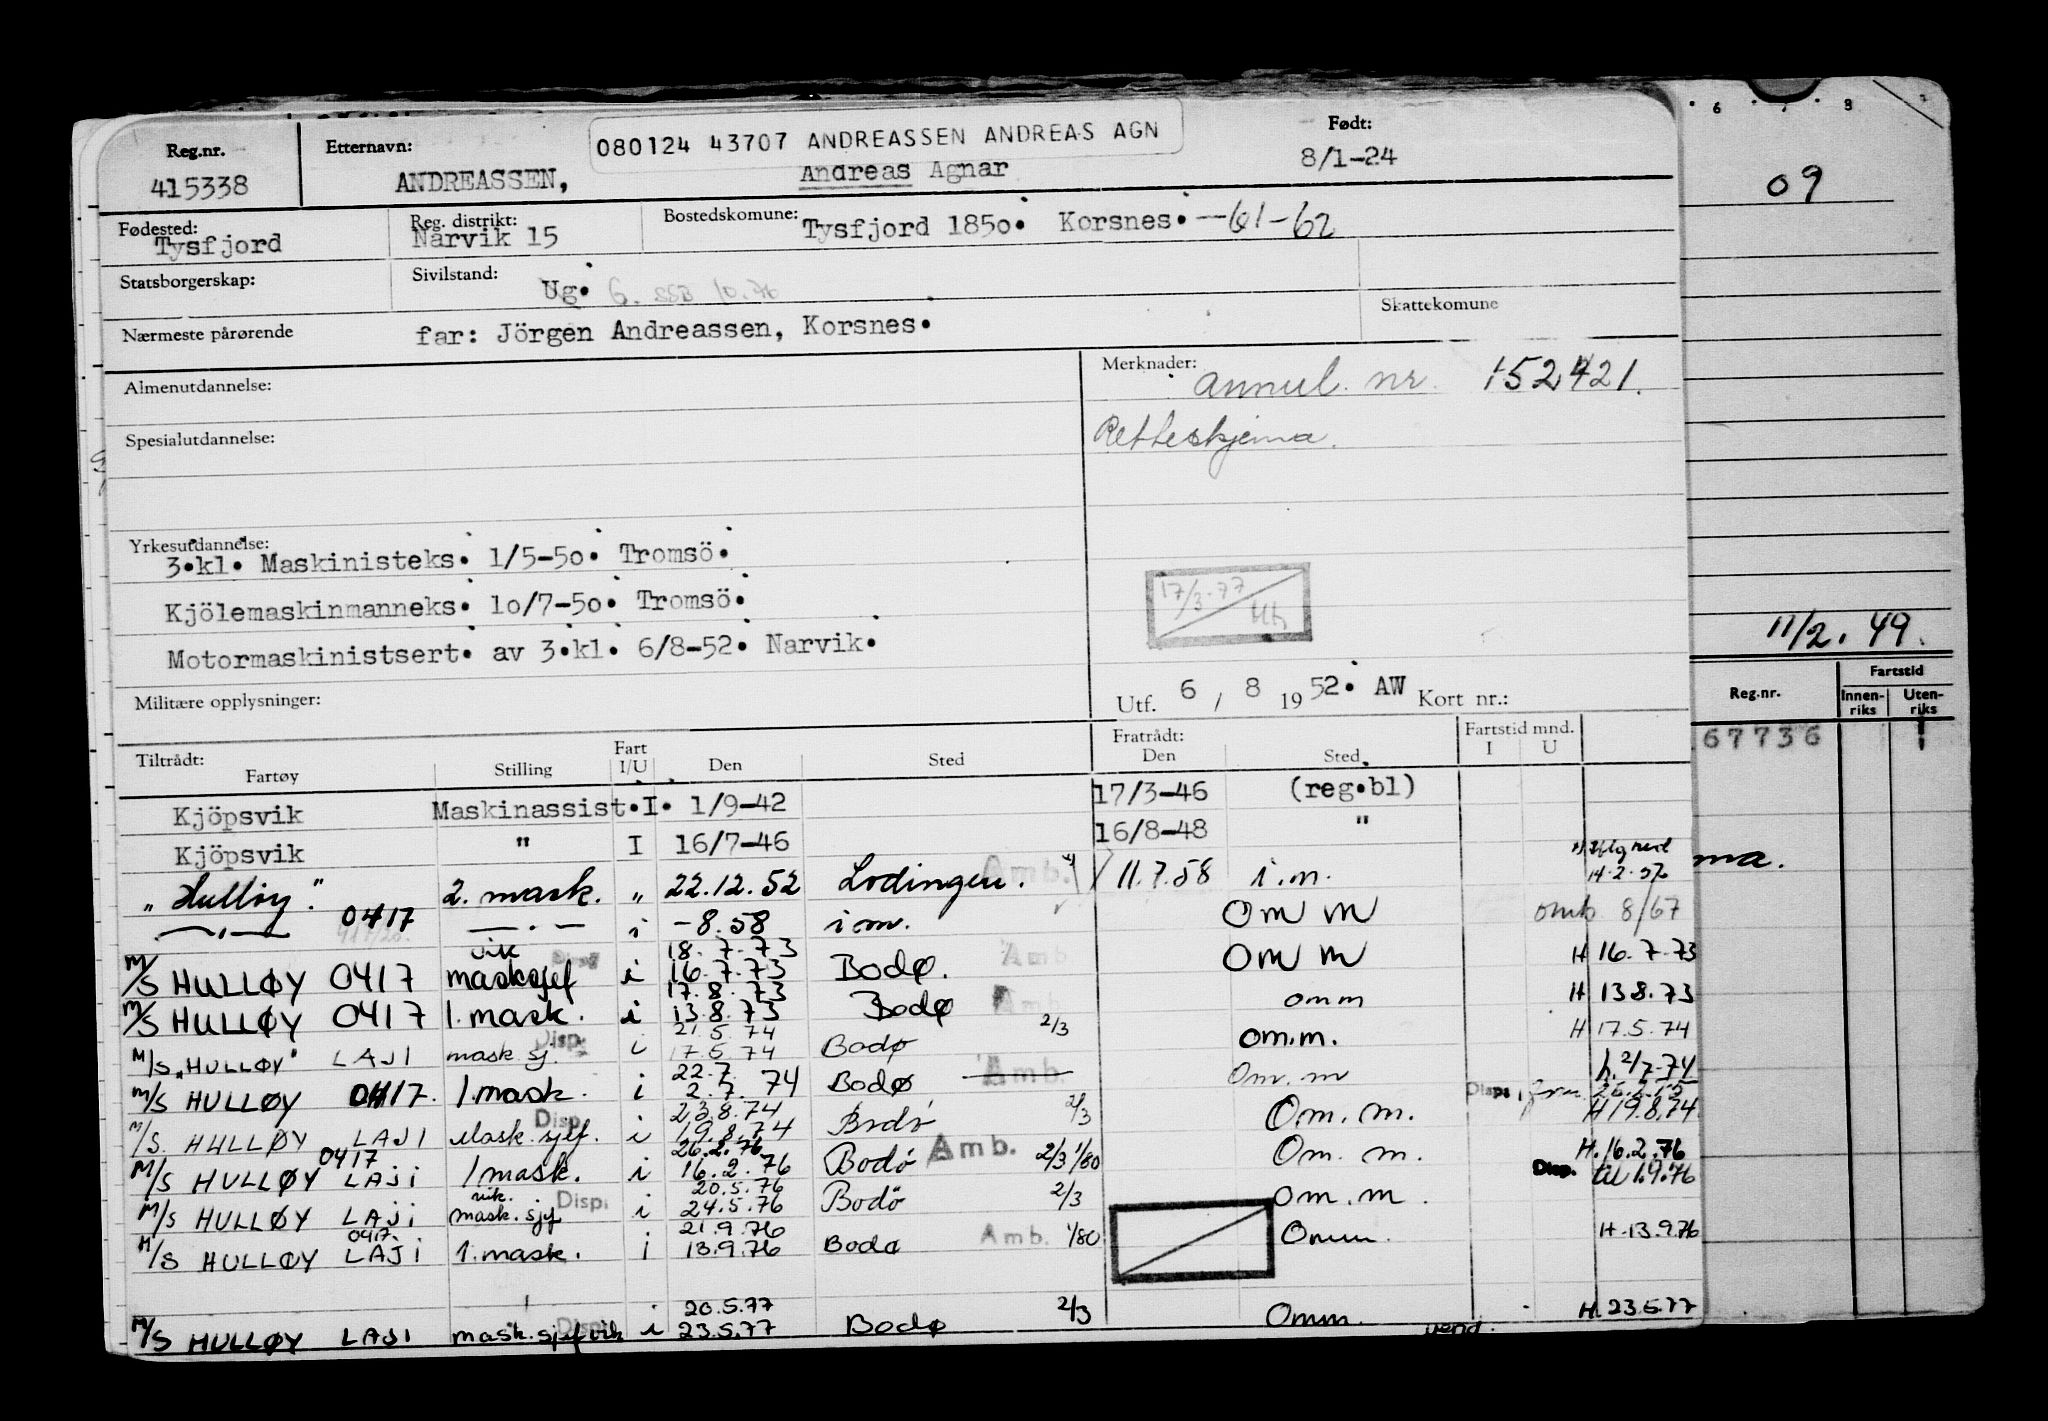 080124 43707 ANDREASSEN ANDREAS AGN
Reg.nr. Etternavn: Født:
415338 ANDREASSEN, Andreas Agnar 8/1-24
Fødested: Reg. distrikt: Bostedskomune:
Tysfjord Narvik 15 Tysfjord 1850. Korsnes. -61-62
Statsborgerskap: Sivilstand: Ug. G. SSB 10.76
Skattekomune
Nærmeste pårørende far: Jörgen Andreassen, Korsnes.
Almenutdannelse: Merknader: annul. nr. 152421.
Spesialutdannelse: Retteskjema.
Yrkesutdannelse:
3.kl. Maskinisteks. 1/5-50. Tromsö.
Kjölemaskinmanneks. 10/7-50. Tromsö.
17/3-77
Motormaskinistsert. av 3.kl. 6/8-52. Narvik.
Militære opplysninger: Utf. 6 / 8 1952. AW Kort nr.:
Tiltrådt: Fratrådt: Fartstid mnd.
Fartøy Stilling Fart I/U Den Sted Den Sted I U
Kjöpsvik Maskinassist. I. 1/9-42 17/3-46 (reg.bl)
Kjöpsvik " I 16/7-46 16/8-48 "
"Hulløy." 2. mask. " 22.12.52 Lodingen. Amb. 11.7.58 i.m. 14.2.57
—"— 0417 —"— i -8.58 i m. Om m omb 8/67
vik Disp 18.7.73
M/S HULLØY 0417 masksjef i 16.7.73 Bodø. Amb Om m H 16.7.73
17.8.73
M/S HULLØY 0417 1. mask. i 13.8.73 Bodø Amb. omm H 13.8.73
Disp. 21.5.74
M/S "HULLØY" LAJI mask sj. i 17.5.74 Bodø 2/3 om.m. H 17.5.74
22.7.
M/S HULLØY 0417. 1. mask. i 2.7.74 Bodø Amb. Om. m h. 2/7-74
Disp. 23.8.74 Disp.
M/S. HULLØY LAJI Mask.sjef. i 19.8.74 Bodö 2/3 Om. m. H 19.8.74
0417 26.2.76
M/S HULLØY LAJI 1 mask. i 16.2.76 Bodö Amb. 2/3 1/80 Om. m. H. 16.2.76
vik. Disp. 20.5.76 Disp. til 1.9.76
M/S HULLØY LAJI mask.sjef i 24.5.76 Bodö 2/3 om. m.
0417. 21.9.76
M/S HULLØY LAJI 1. mask. i 13.9.76 Bodø Amb. 1/80 Omm. H-13.9.76
20.5.77
M/S HULLØY LAJI mask.sjef vik Disp. i 23.5.77 Bodø 2/3 Omm. H. 23.5.77
vend.
6 7 8
09
11/2. 49.
Reg.nr. Fartstid
Innenriks Utenriks
67736 1
ma.